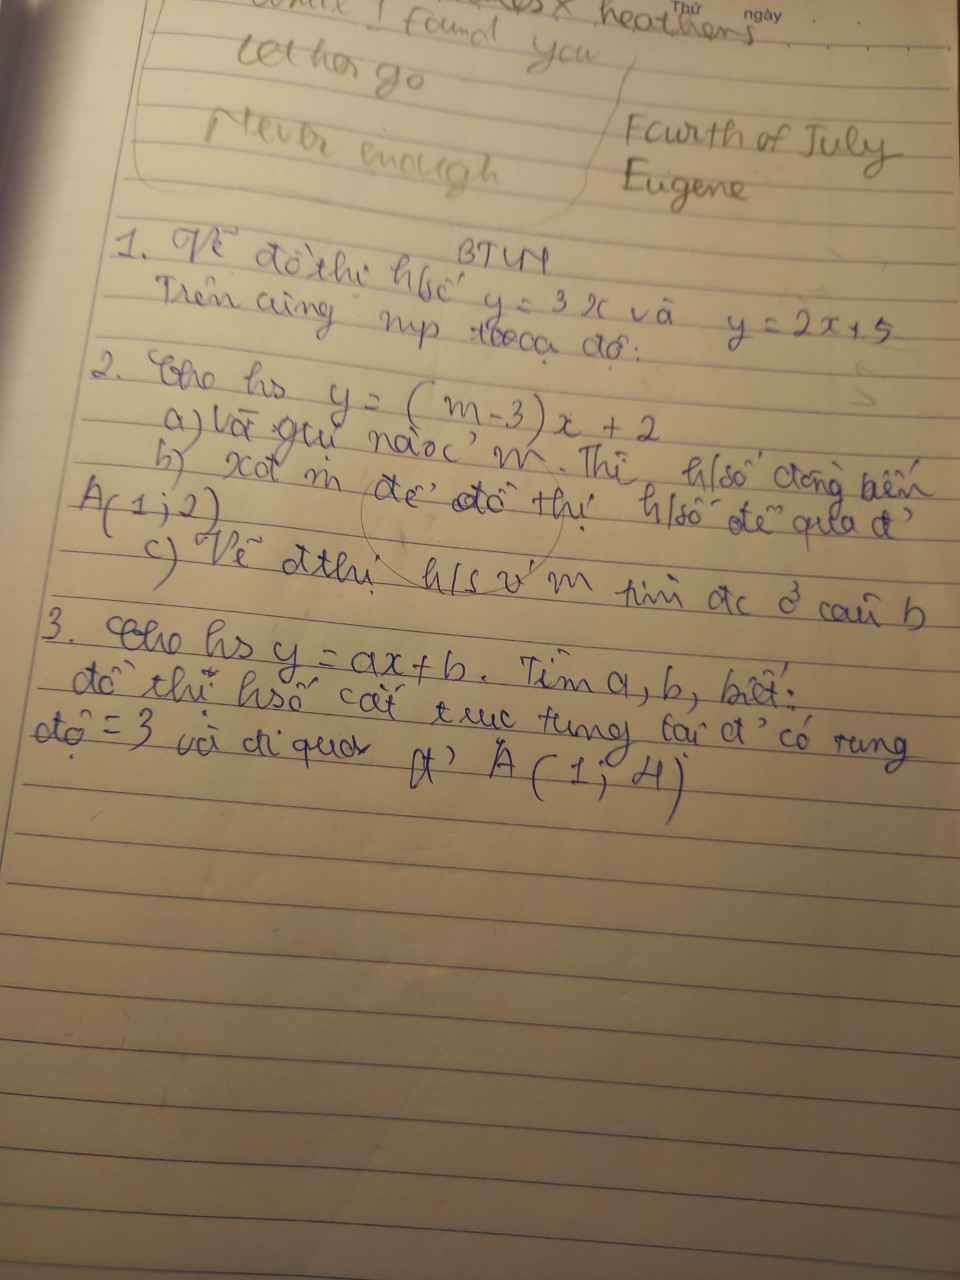 heathens
Thứ ngày
I found you
Let her go
Never enough
Fourth of July
Eugene
BTVN
1. Vẽ đồ thị h/số y = 3x và y = 2x + 5
Trên cùng mp tọa độ:
2. Cho hs y = (m-3)x + 2
a) Với giá nào c' m. Thì h/số đồng biến
b) xđ m để đồ thị h/số để qua đ'
A(1; 2)
c) Vẽ đthị h/s v' m tìm đc ở câu b
3. Cho hs y = ax + b. Tìm a, b, biết:
đồ thị hsố cắt trục tung tại đ' có tung
độ = 3 và đi qua đ' A (1; 4)